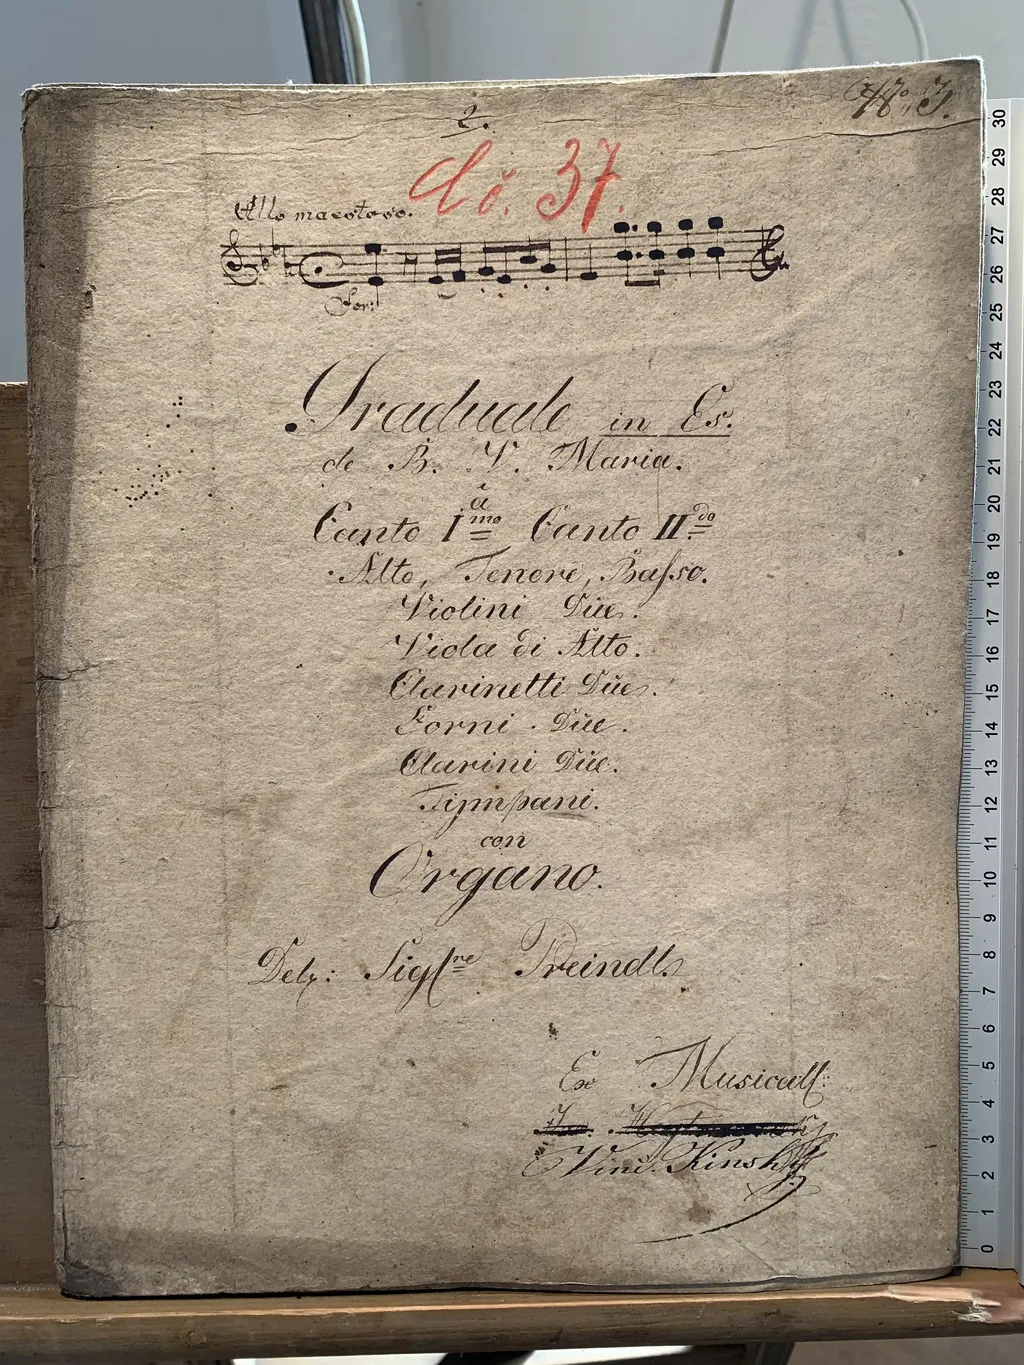 No. 3.
2.
čč. 37.
Allo maestoso.
For:
Graduale in Es.
de B. V. Maria.
à
Canto Imo Canto IIdo
Alto, Tenore, Basso.
Violini Due.
Viola di Alto.
Clarinetti Düe.
Corni Düe.
Clarini Düe.
Tijmpani.
con
Organo.
Del: Sigre Preindl.
Ex Musicall:
Vinc. Kinsky
30
29
28
27
26
25
24
23
22
21
20
19
18
17
16
15
14
13
12
11
10
9
8
7
6
5
4
3
2
1
0